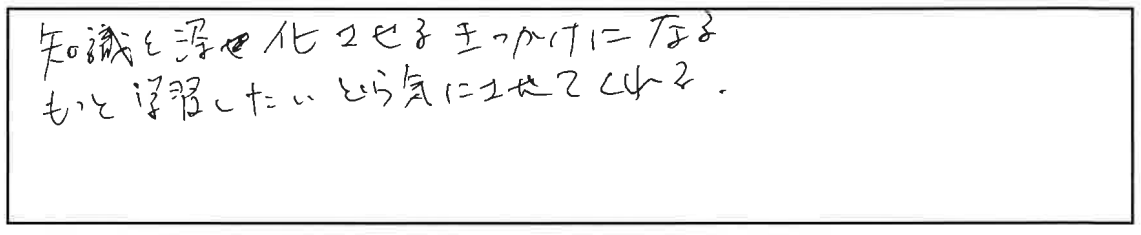 知識を深化させるきっかけになる
もっと学習したいという気にさせてくれる.